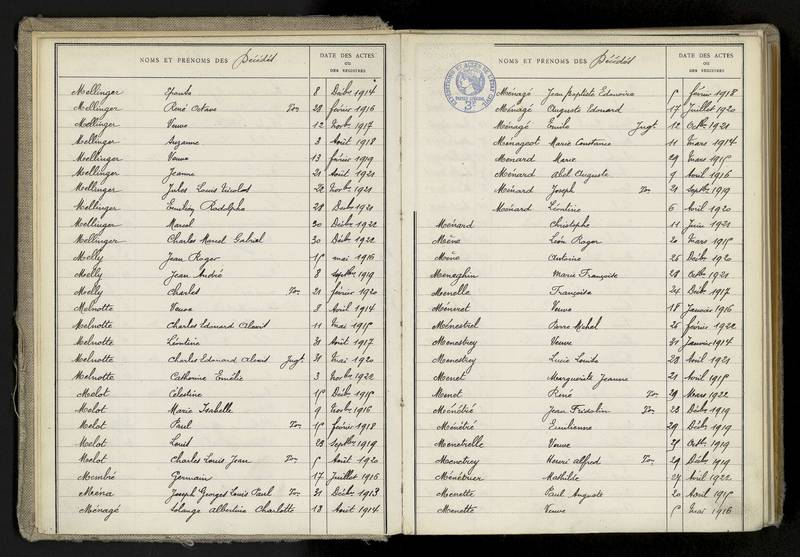 NOMS ET PRÉNOMS DES Décédés
DATE DES ACTES
OU
DES REGISTRES
Mellinger Epouse 8 Décbr 1914
Mellinger René Octave Ton 28 février 1916
Mellinger Veuve 12 Novbr 1917
Mellinger Suzanne 3 Août 1918
Mellinger Veuve 13 février 1919
Mellinger Jeanne 21 Août 1921
Mellinger Jules Louis Nicolas 22 Novbr 1921
Mellinger Emilien Rodolphe 28 Décbr 1921
Mellinger Marcel 30 Décbr 1922
Mellinger Charles Marcel Gabriel 30 Décbr 1922
Melly Jean Roger 15 mai 1916
Melly Jean André 8 septbr 1919
Melly Charles Ton 21 février 1920
Melnotte Veuve 8 Avril 1914
Melnotte Charles Edouard Alexis 11 Mai 1915
Melnotte Léontine 31 Août 1917
Melnotte Charles Edouard Alexis Jugt 31 Mai 1920
Melnotte Catherine Emélie 3 Novbr 1922
Melot Célestine 15 Décbr 1915
Melot Marie Isabelle 9 Novbr 1916
Melot Paul Ton 15 février 1918
Melot Louis 23 Septbre 1919
Melot Charles Louis Jean Ton 5 Août 1920
Membré Germain 17 Juillet 1916
Ména Joseph Georges Louis Paul Ton 31 Décbr 1913
Ménagé Solange Albertine Charlotte 13 Août 1914
NOMS ET PRÉNOMS DES Décédés
DATE DES ACTES
OU
DES REGISTRES
Ménagé Jean Baptiste Edmoire 5 février 1918
Ménagé Auguste Edouard 17 Juillet 1920
Ménagé Emile Jugt 12 Octbr 1921
Menageot Marie Constance 11 Mars 1914
Menard Marie 29 Mars 1915
Ménard Abel Auguste 9 Avril 1916
Ménard Joseph Ton 21 Septbr 1919
Ménard Léontine 6 Avril 1920
Ménard Christophe 11 Juin 1921
Mène Léon Roger 20 Mars 1915
Mène Antoine 26 Décbr 1920
Meneghin Marie Françoise 28 Octbr 1921
Menelle Françoise 24 Décbr 1917
Ménéret Veuve 18 Janvier 1916
Ménestrel Pierre Michel 25 février 1922
Menestrey Veuve 31 Janvier 1914
Menestrey Lucie Louise 28 Avril 1921
Menet Marguerite Jeanne 21 Avril 1915
Menet René Ton 29 Mars 1922
Ménétré Jean Fridolin Ton 23 Décbr 1919
Ménétré Emilienne 29 Décbr 1919
Menetrelle Veuve 25 Octbr 1919
Menetrey Henri Alfred Ton 29 Décbr 1919
Ménétrier Mathilde 27 Avril 1922
Menette Paul Auguste 20 Avril 1915
Menette Veuve 5 Mai 1916